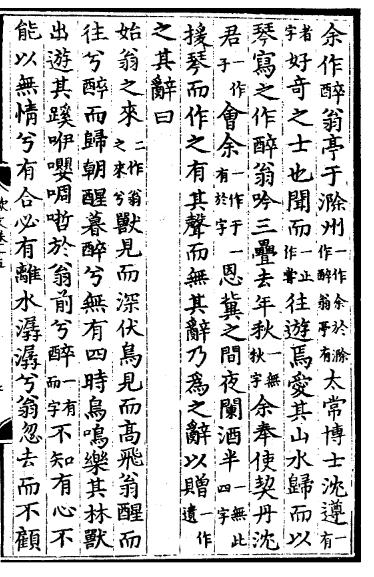 余作醉翁亭于滁州一作余於滁作醉翁亭有太常博士沈遵一有
者字好奇之士也聞而一止作嘗往遊焉愛其山水歸而以
琴寫之作醉翁吟三疊去年秋一無秋字余奉使契丹沈
君一作子會余一作于一有於字恩冀之間夜闌酒半一無此四字
援琴而作之有其聲而無其辭乃爲之辭以贈一作遺
之其辭曰
始翁之來二作翁之來兮獸見而深伏鳥見而高飛翁醒而
往兮醉而歸朝醒暮醉兮無有四時鳥鳴樂其林獸
出遊其蹊咿嚶啁哳於翁前兮醉一有而字不知有心不
能以無情兮有合必有離水潺潺兮翁忽去而不顧